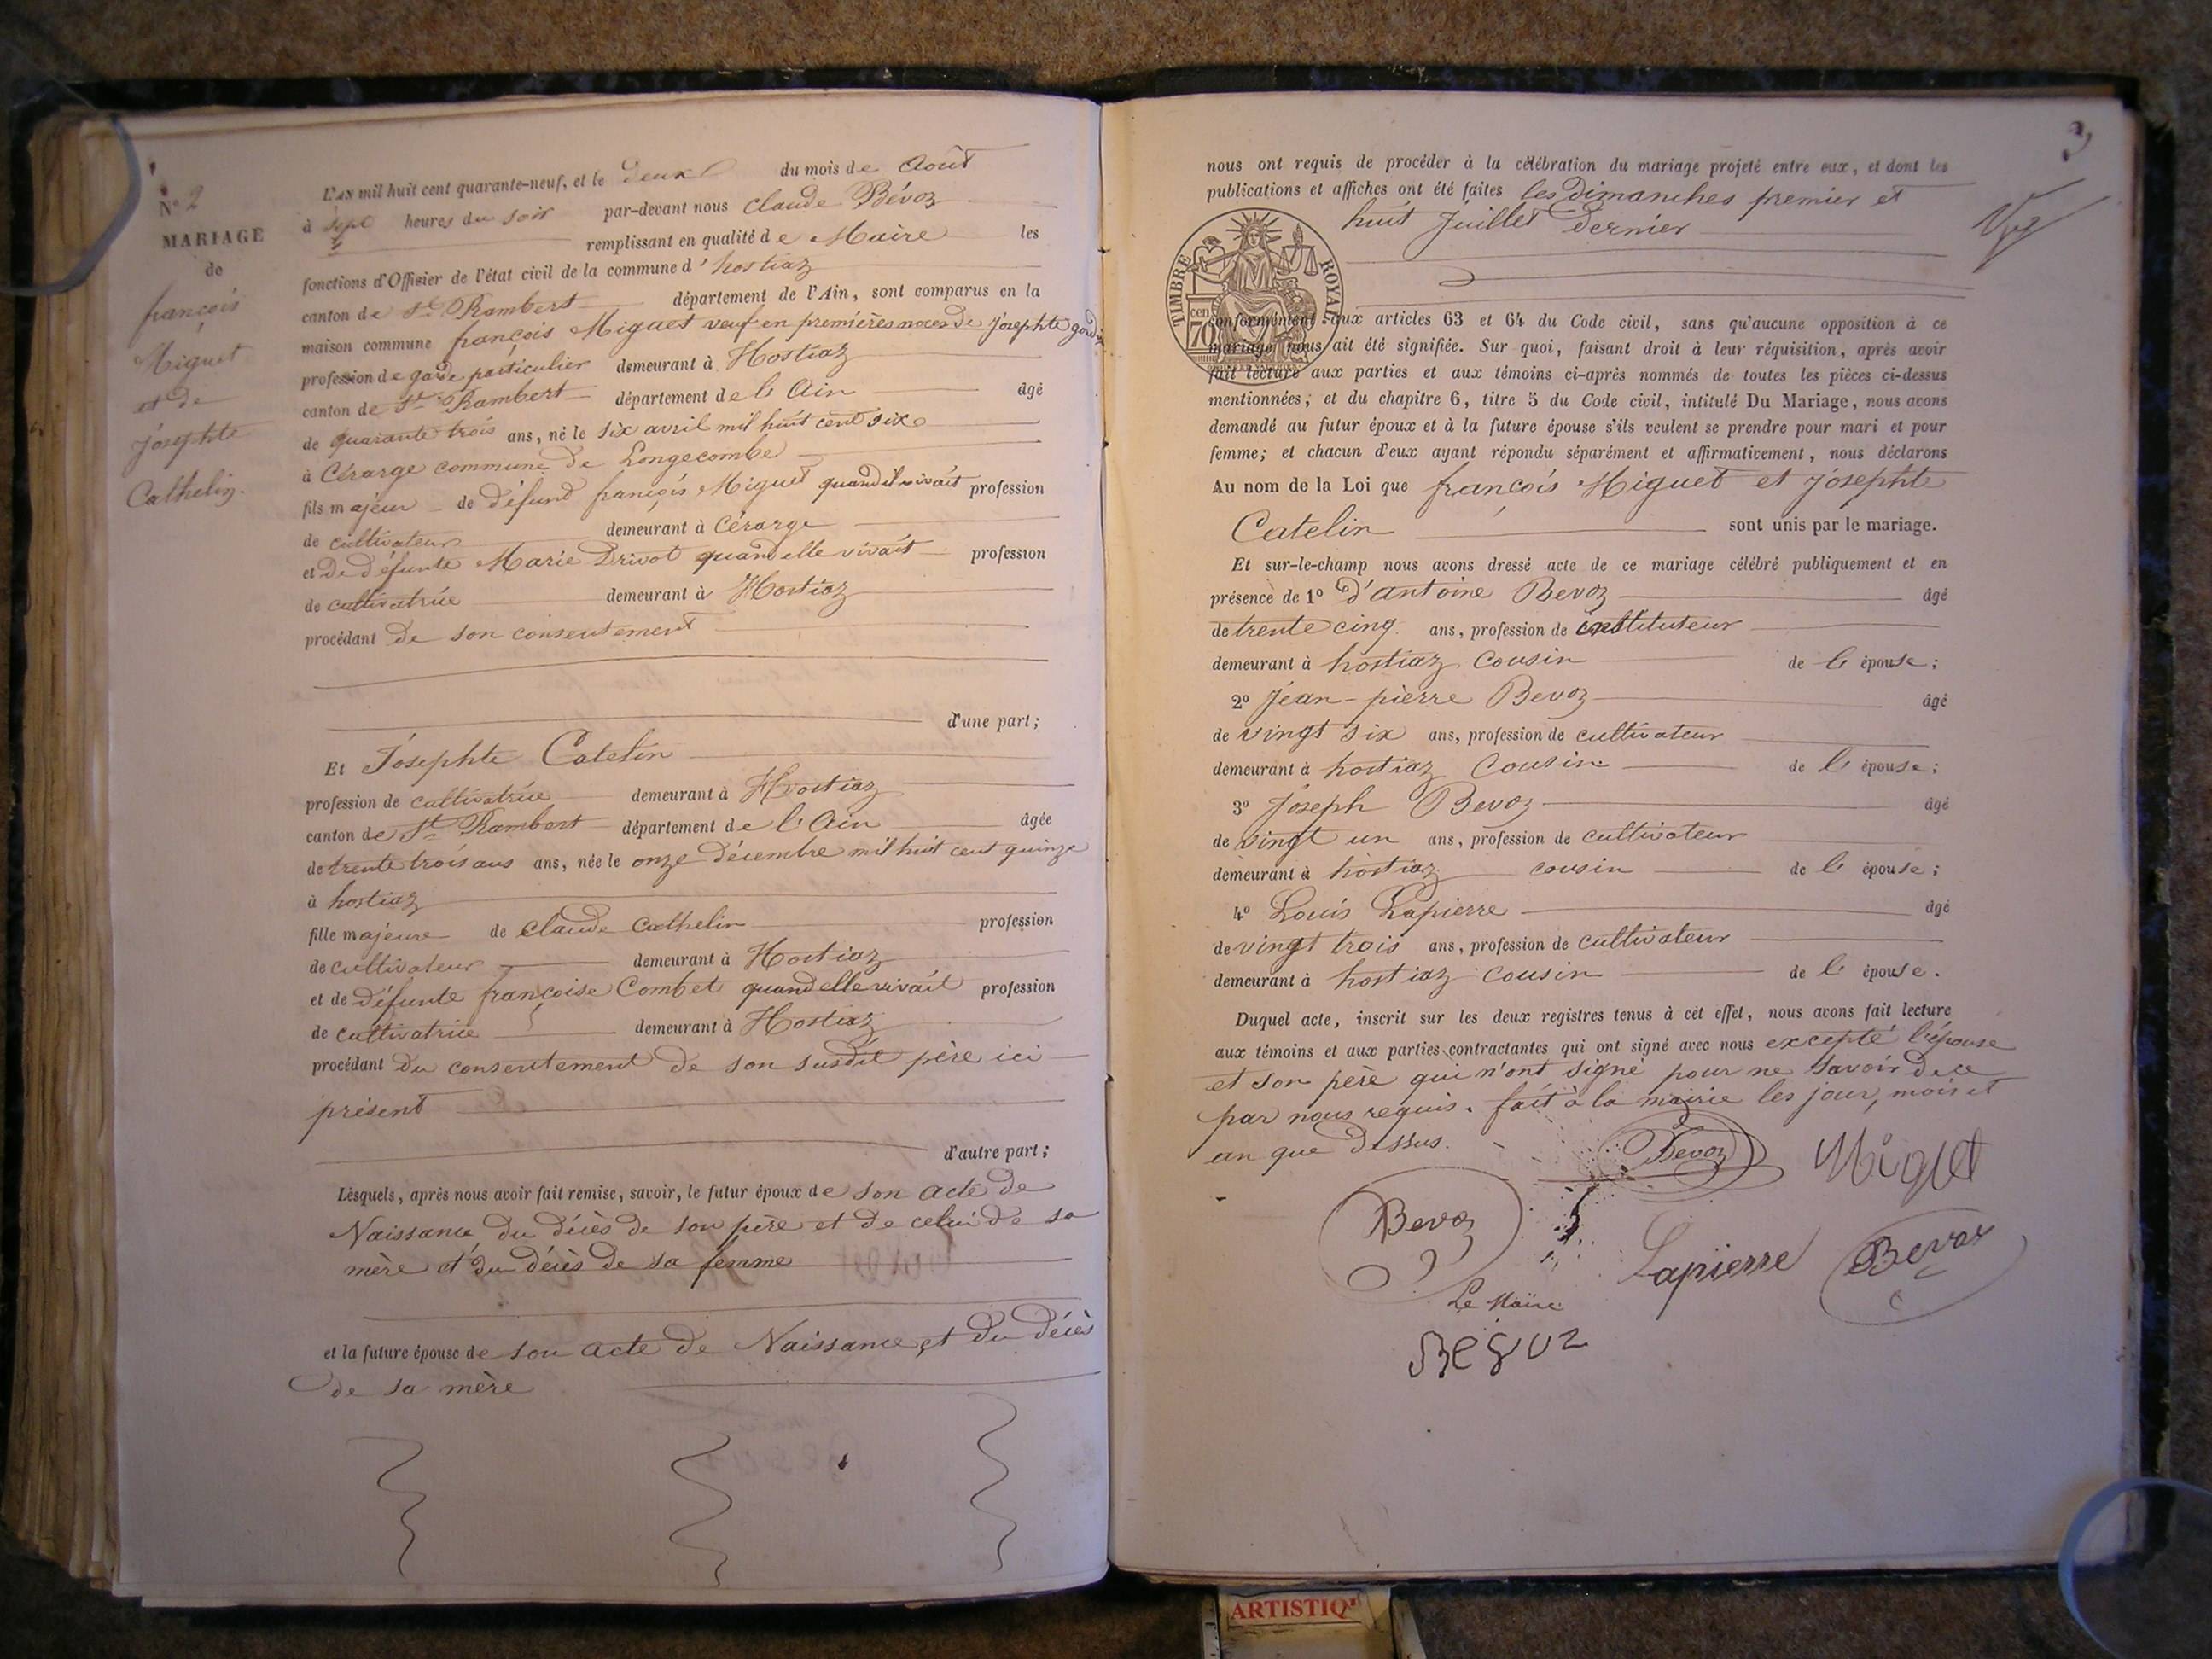 N° 2
MARIAGE
de
françois
Miguet
et de
josephte
Cathelin.
L'AN mil huit cent quarante-neuf, et le deux du mois de Août
à sept heures du soir par-devant nous Claude Bévoz
remplissant en qualité de Maire les
fonctions d'Officier de l'état civil de la commune d'hostiaz
canton de St Rambert département de l'Ain, sont comparus en la
maison commune françois Miguet veuf en premières noces de josephte
profession de garde particulier demeurant à Hostiaz
canton de St Rambert département de l'Ain âgé
de quarante trois ans, né le six avril mil huit cent six
à Cérarge commune de Longecombe
fils majeur de défund françois Miguet quand il vivait profession
de cultivateur demeurant à Cérarge
et de défunte Marie Drivot quand elle vivait profession
de cultivatrice demeurant à Hostiaz
procédant de son consentement
d'une part;
Et Josephte Catelin
profession de cultivatrice demeurant à Hostiaz
canton de St Rambert département de l'Ain âgée
de trente trois ans ans, née le onze décembre mil huit cent quinze
à hostiaz
fille majeure de Claude Cathelin profession
de cultivateur demeurant à Hostiaz
et de défunte françoise Combet quand elle vivait profession
de cultivatrice demeurant à Hostiaz
procédant du consentement de son susdit père ici
présent
d'autre part;
Lesquels, après nous avoir fait remise, savoir, le futur époux de son acte de
Naissance du décès de son père et de celui de sa
mère et du décès de sa femme
et la future épouse de son acte de Naissance et du décès
de sa mère
3
nous ont requis de procéder à la célébration du mariage projeté entre eux, et dont les
publications et affiches ont été faites les dimanches premier et
huit juillet dernier
TIMBRE ROYAL
70 cen
conformément aux articles 63 et 64 du Code civil, sans qu'aucune opposition à ce
mariage nous ait été signifiée. Sur quoi, faisant droit à leur réquisition, après avoir
fait lecture aux parties et aux témoins ci-après nommés de toutes les pièces ci-dessus
mentionnées; et du chapitre 6, titre 5 du Code civil, intitulé Du Mariage, nous avons
demandé au futur époux et à la future épouse s'ils veulent se prendre pour mari et pour
femme; et chacun d'eux ayant répondu séparément et affirmativement, nous déclarons
Au nom de la Loi que françois Miguet et josephte
Catelin sont unis par le mariage.
Et sur-le-champ nous avons dressé acte de ce mariage célébré publiquement et en
présence de 1° d'antoine Bevoz âgé
de trente cinq ans, profession de instituteur
demeurant à hostiaz cousin de l'épouse;
2° Jean-pierre Bevoz âgé
de vingt six ans, profession de cultivateur
demeurant à hostiaz Cousin de l'épouse;
3° Joseph Bevoz âgé
de vingt un ans, profession de cultivateur
demeurant à hostiaz cousin de l'épouse;
4° Louis Lapierre âgé
de vingt trois ans, profession de cultivateur
demeurant à hostiaz cousin de l'épouse.
Duquel acte, inscrit sur les deux registres tenus à cet effet, nous avons fait lecture
aux témoins et aux parties contractantes qui ont signé avec nous excepté l'épouse
et son père qui n'ont signé pour ne savoir de ce
par nous requis. fait à la mairie les jour, mois et
an que dessus.
Bevoz Miguet
Bevoz Lapierre Bevoz
Le Maire
Bevoz
ARTISTIQ